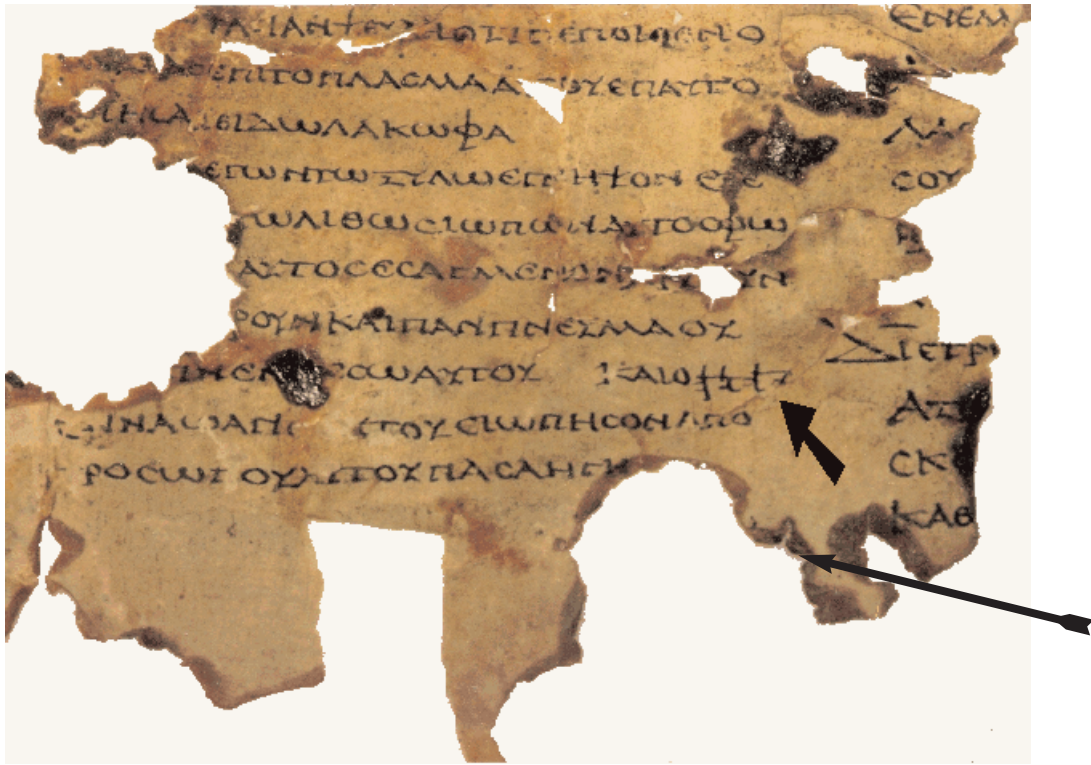 ΕΠΟΙΘΕΝΟ
ΕΠΙΤΟΠΛΑϹΜΑΑΥΤΟΥΕΠΑΥΤΟ
ΕΙΔΩΛΑΚΩΦΑ
ΕΓΩΝΤΩΞΥΛΩΕΓΝΗΨΟΝΕΞΕ
ΤΩΛΙΘΩϹΙΩΠΩΝΑΥΤΟΦΩ
ΑΥΤΟϹΕϹΑΓΜΕΝΟΝ ΥΝ
ΡΟΥΝΚΑΙΠΑΝΠΝΕΥΜΑΟΥ
ΕϹΩΑΥΤΟΥ ΚΑΙΟ𐤉𐤄𐤅𐤄
ΝΑΩΑΓΙ ΥΤΟΥϹΙΩΠΗϹΟΝΑΠΟ
ΡΟϹΩΠΟΥΑΥΤΟΥΠΑϹΑΗΓΗ
ΕΝΕΜ
ΛΑ
ϹΟΥ
ΔΙΕΤΡ
ΑΥ
ϹΚ
ΚΑΘ